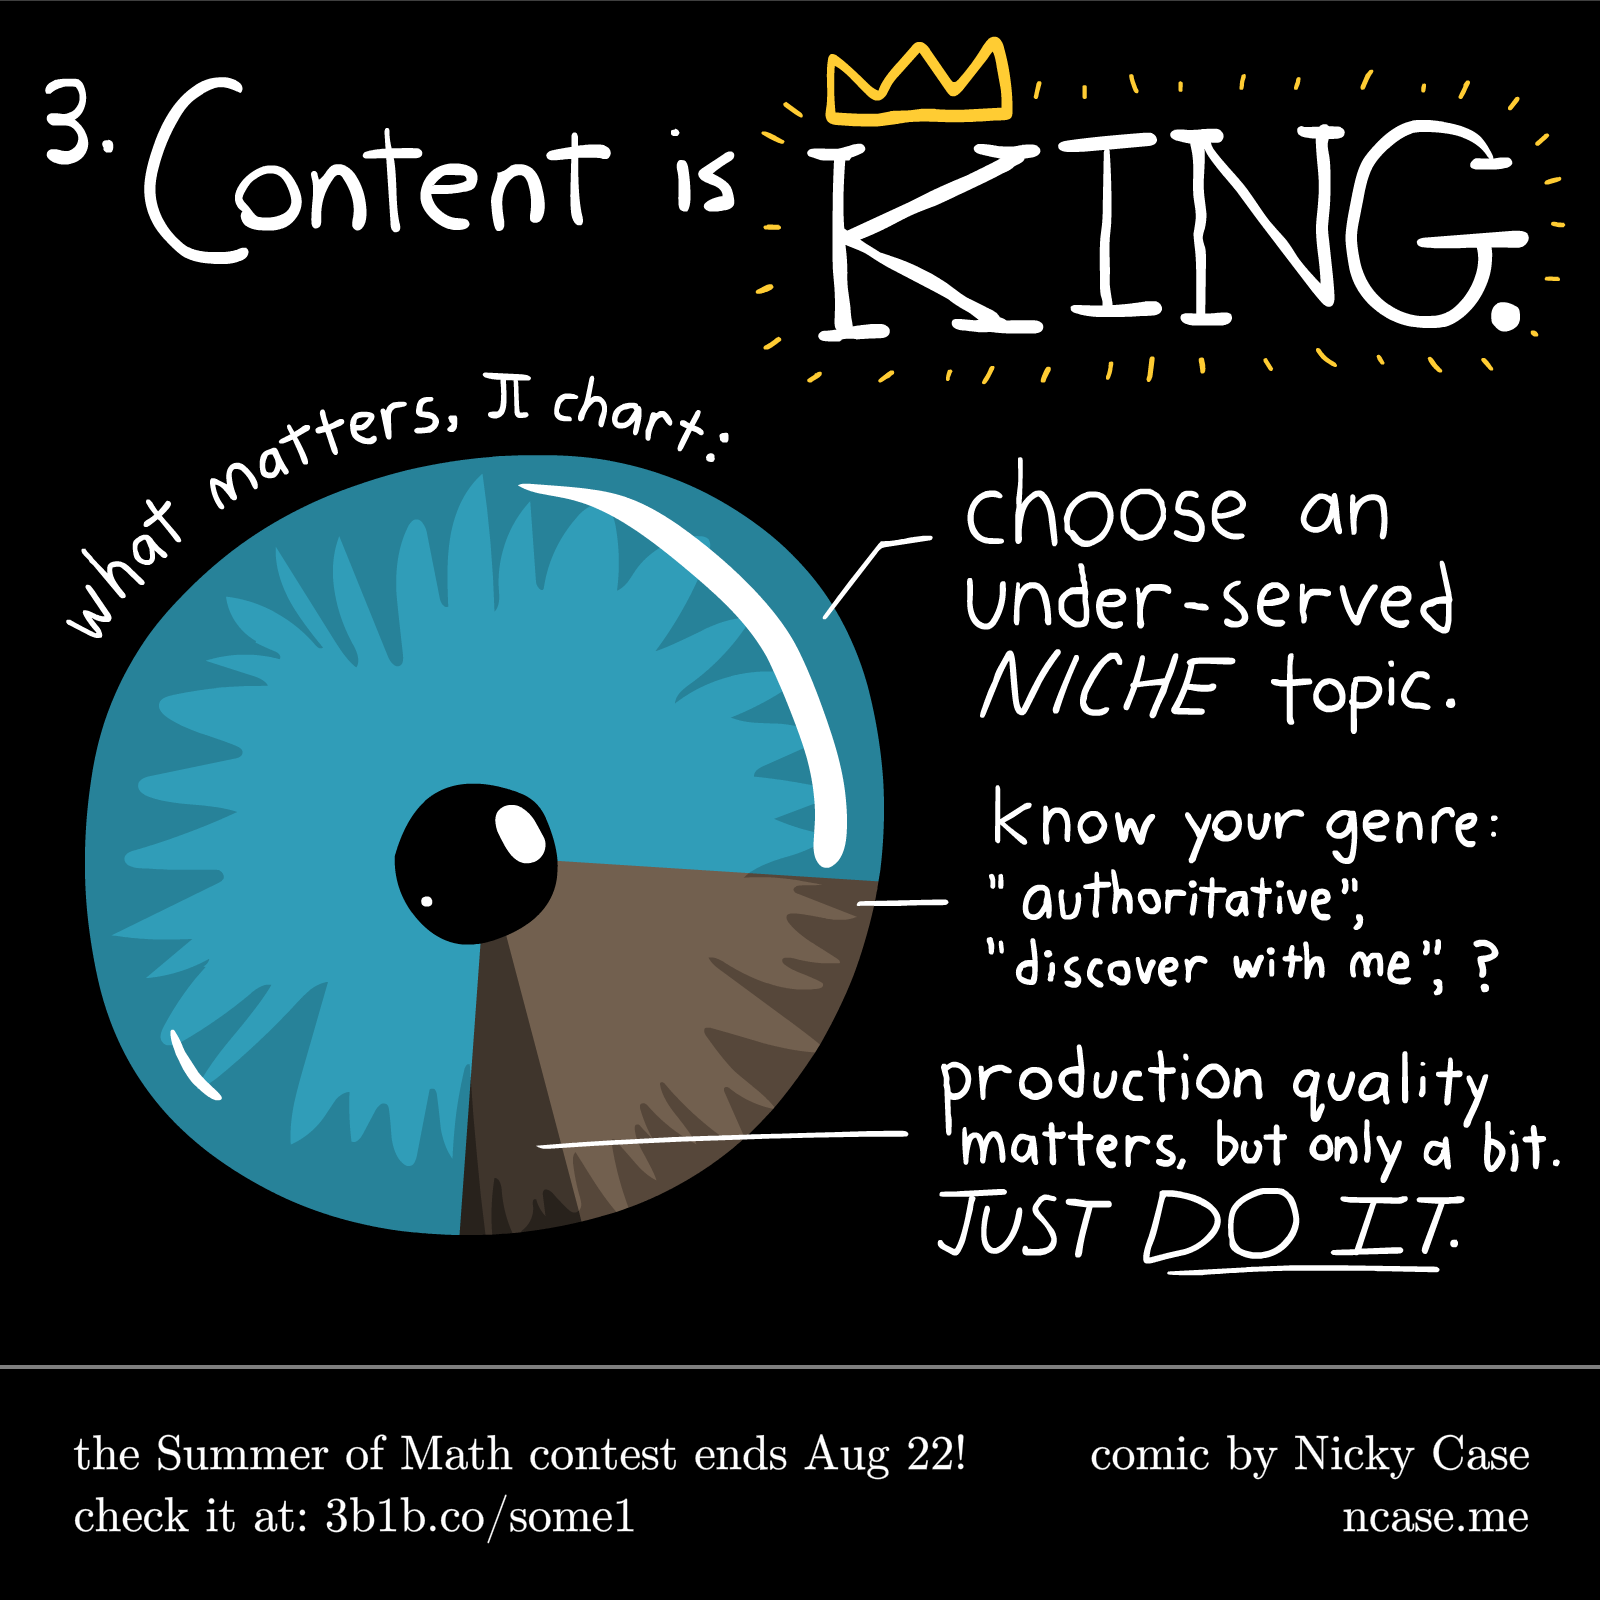 3. Content is KING.
what matters, π chart:
choose an
under-served
NICHE topic.
know your genre:
"authoritative",
"discover with me", ?
production quality
matters, but only a bit.
JUST DO IT.
the Summer of Math contest ends Aug 22!
check it at: 3b1b.co/some1
comic by Nicky Case
ncase.me